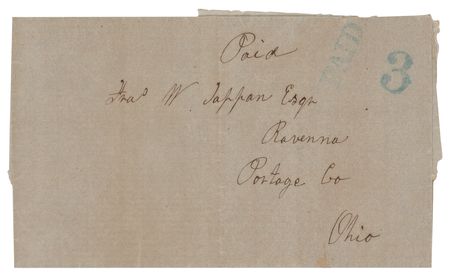 Paid
PAID
3
Fraˢ W Tappan Esqr
Ravenna
Portage Co
Ohio